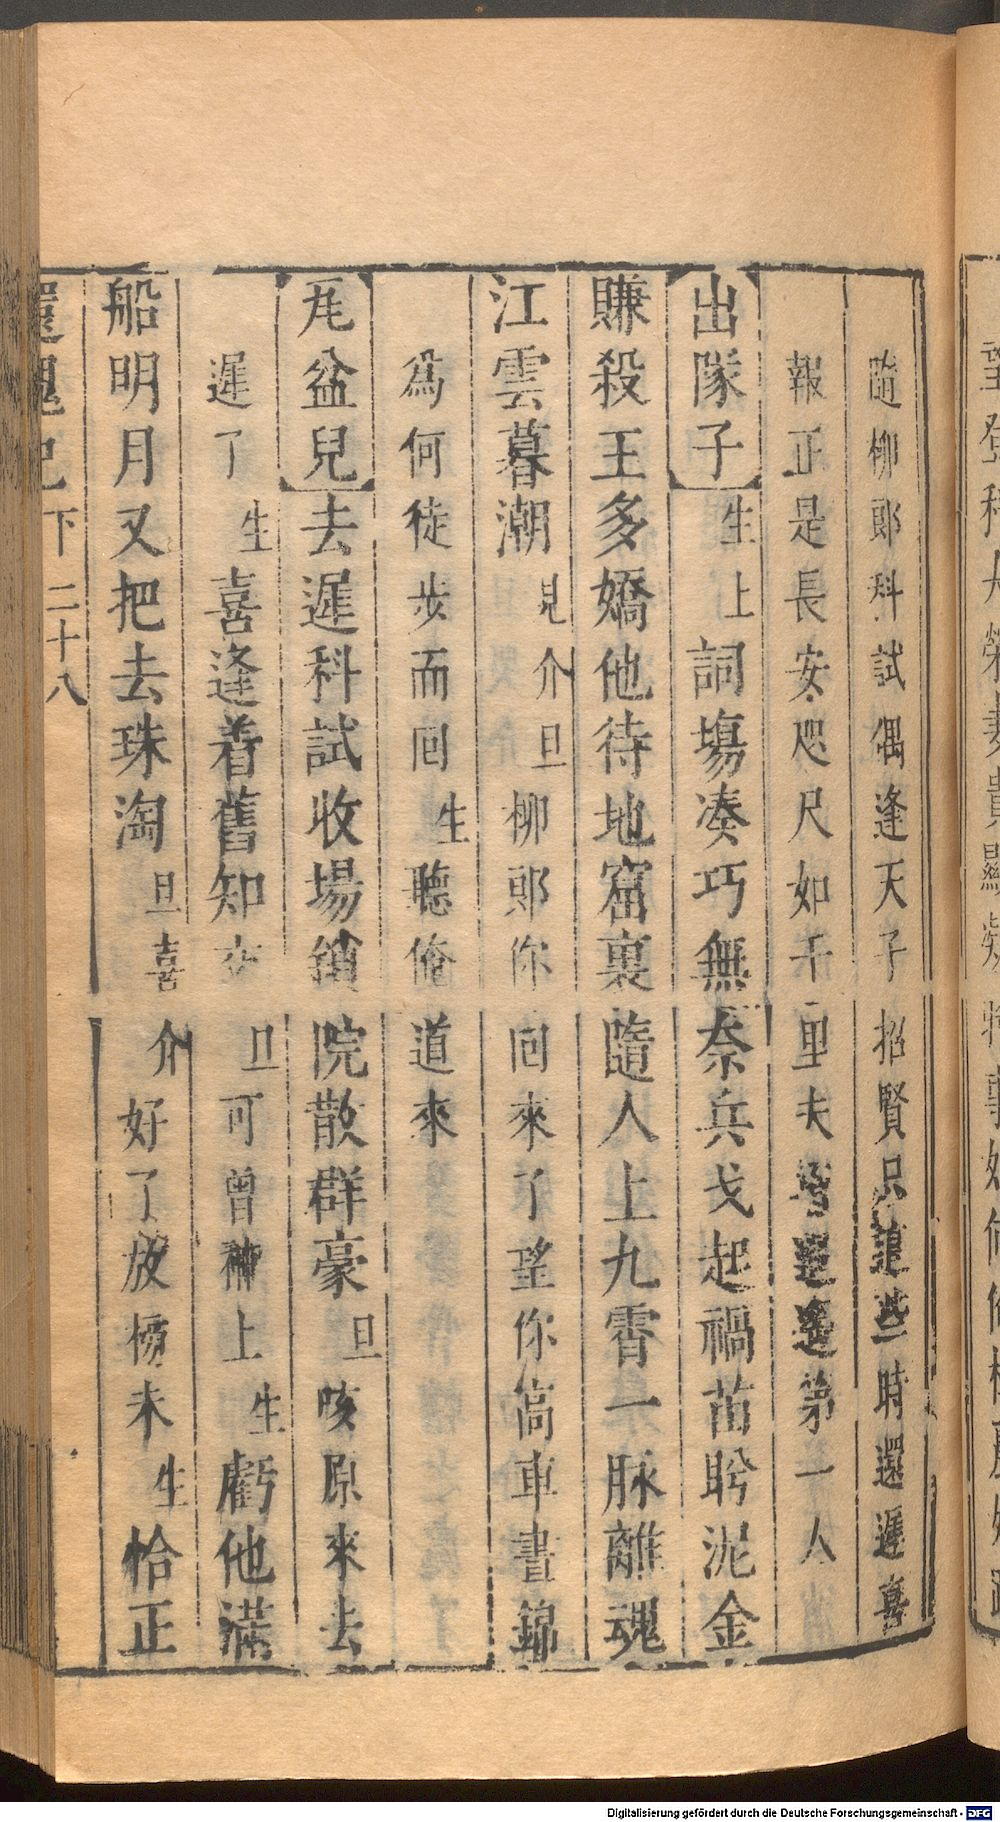 隨柳郎科試偶逢天子招賢只這些時還遲喜
報正是長安咫尺如千里夫壻迢遙第一人
出隊子生上詞場凑巧無奈兵戈起禍苗盼泥金
賺殺王多嬌他待地窟裏隨人上九霄一脉離魂
江雲暮潮見介旦柳郎你回來了望你高車晝錦
爲何徒步而回生聽俺道來
瓦盆兒去遲科試收塲鎖院散群豪旦咳原來去
遲了生喜逢着舊知交旦可曾補上生虧他滿
船明月又把去珠淘旦喜介好了放榜未生恰正
還魂記下二十八
Digitalisierung gefördert durch die Deutsche Forschungsgemeinschaft - DFG